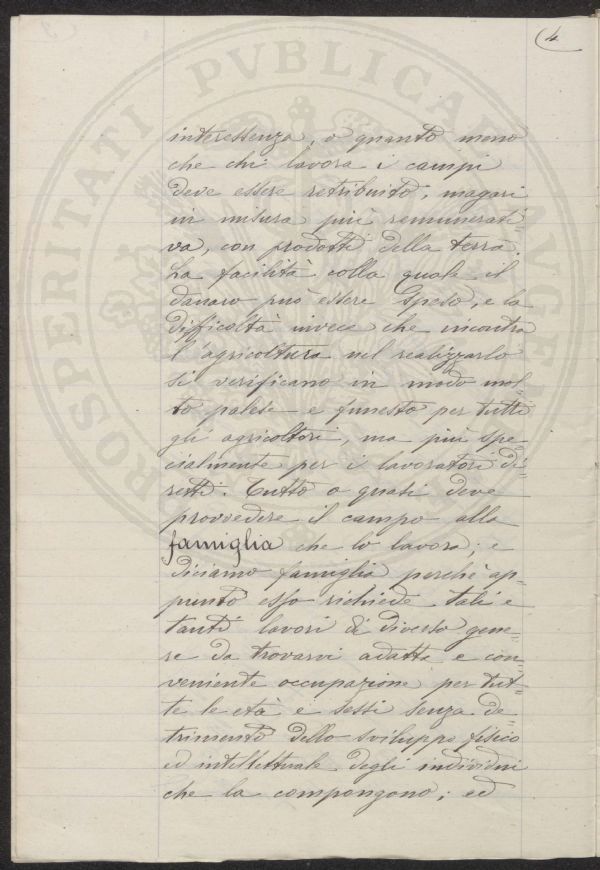 4
interessenza, o quanto meno
che chi lavora i campi
deve essere retribuito, magari
in misura più remunerati=
va, con prodotti della terra.
La facilità colla quale il
danaro può essere speso, e la
difficoltà invece che incontra
l'agricoltura nel realizzarlo
si verificano in modo mol=
to palese e funesto per tutti
gli agricoltori, ma più spe
cialmente per i lavoratori di=
retti. Tutto o quasi deve
provvedere il campo alla
famiglia che lo lavora; e
diciamo famiglia perchè ap=
punto esso richiede tali e
tanti lavori di diverso gene=
re da trovarvi adatta e con=
veniente occupazione per tut=
te le età e sessi senza de=
trimento dello sviluppo fisico
ed intellettuale degli individui
che la compongono; ed
PROSPERITATI PVBLICAE AVGENDAE